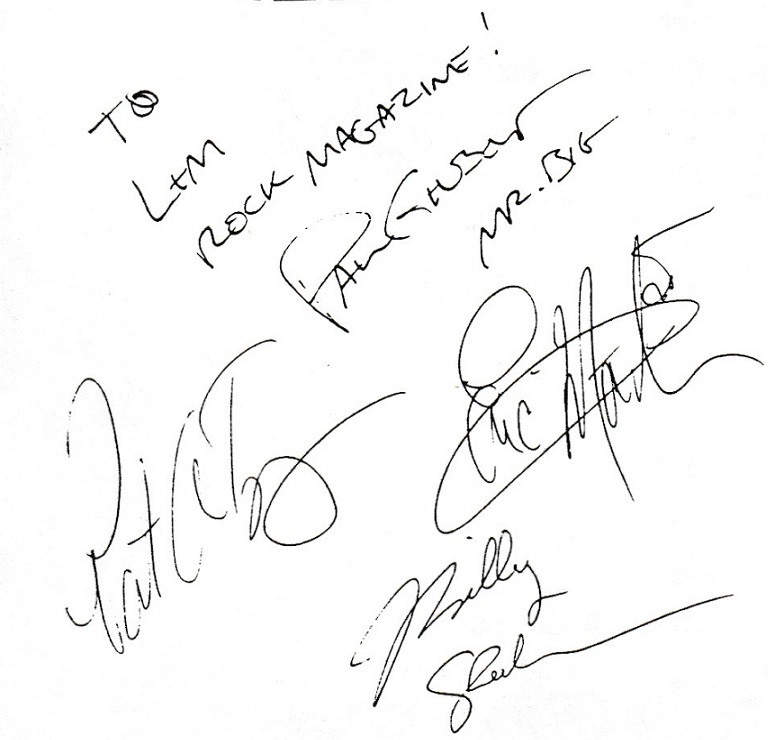 TO
L+M
ROCK MAGAZINE!
PAUL GILBERT
MR. BIG
Eric Martin
Pat
Billy
Sheehan